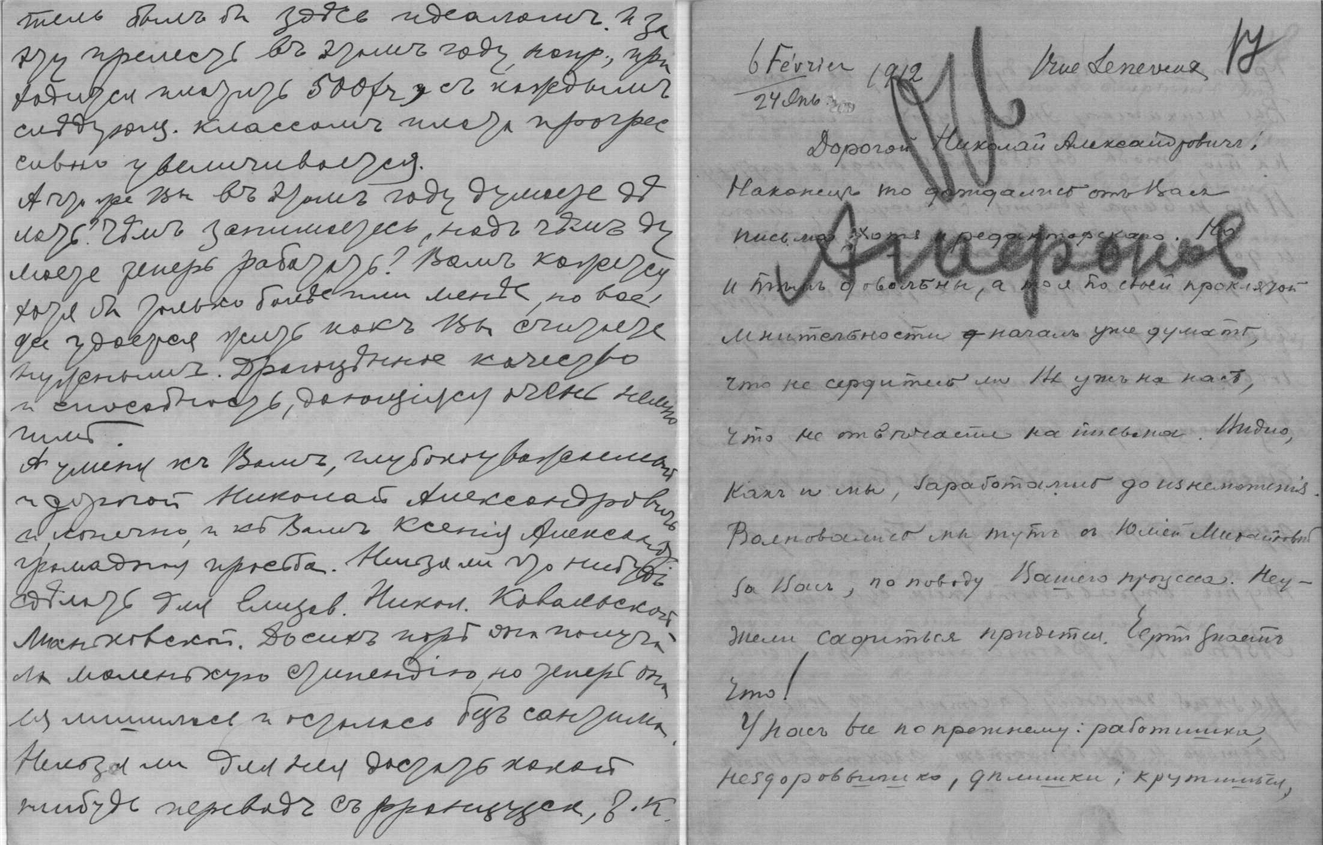 тель былъ бы здѣсь идеаломъ. И за
эту прелесть въ этомъ году, напр., при
ходится платить 500 fr, и съ каждымъ
слѣдующ. классомъ плата прогрес
сивно увеличивается.
А что же Вы въ этомъ году думаете дѣ
лать? Чѣмъ занимаетесь, надъ чѣмъ ду
маете теперь работать? Вамъ кажется
хотя бы только болѣе или менѣе, но все
же удается жить какъ Вы считаете
нужнымъ. Драгоцѣнное качество
и способность, дающіяся очень немно
гимъ.
А у меня къ Вамъ, глубокоуважаемый
и дорогой Николай Александровичъ
и, конечно, и къ Вамъ Ксенія Александр
громадная просьба. Нельзя ли что нибудь
сдѣлать для Елизав. Никол. Ковальской
Маньковской. До сихъ поръ она получа
ла маленькую стипендію, но теперь она
ея лишилась и осталась безъ сантима.
Нельзя ли для нея достать какой
нибудь переводъ съ французск., т. к.
6 Février 1912
24 Янв.
17
Дорогой Николай Александровичъ!
Наконецъ то дождались отъ Васъ
письма, хотя редакторскаго. Но
и тѣмъ довольны, а то я по своей проклятой
мнительности началъ уже думать,
что не сердитесь ли Вы ужъ на насъ,
что не отвѣчаете на письма. Видно,
какъ и мы, заработались до изнеможенія.
Волновались мы тутъ съ Юліей Михайловной
за Васъ, по поводу Вашего процесса. Неу-
жели садиться придется. Чертъ знаетъ
что!
У насъ все по прежнему: работишка,
нездоровьишко, дѣлишки; крутишься,